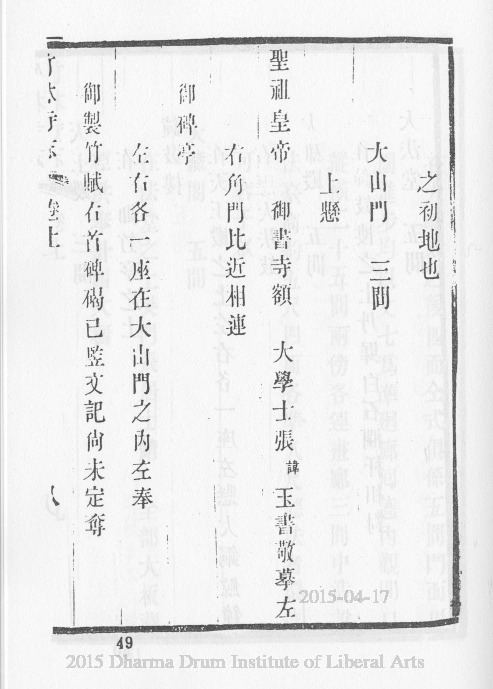 之初地也
大山門　三間
上懸
聖祖皇帝　御書寺額　大學士張諱玉書敬摹左
右角門比近相連
御碑亭
左右各一座在大山門之內左奉
御製竹賦右首碑碣已竪文記尙未定奪
卷上　八
49
2015-04-17
2015 Dharma Drum Institute of Liberal Arts